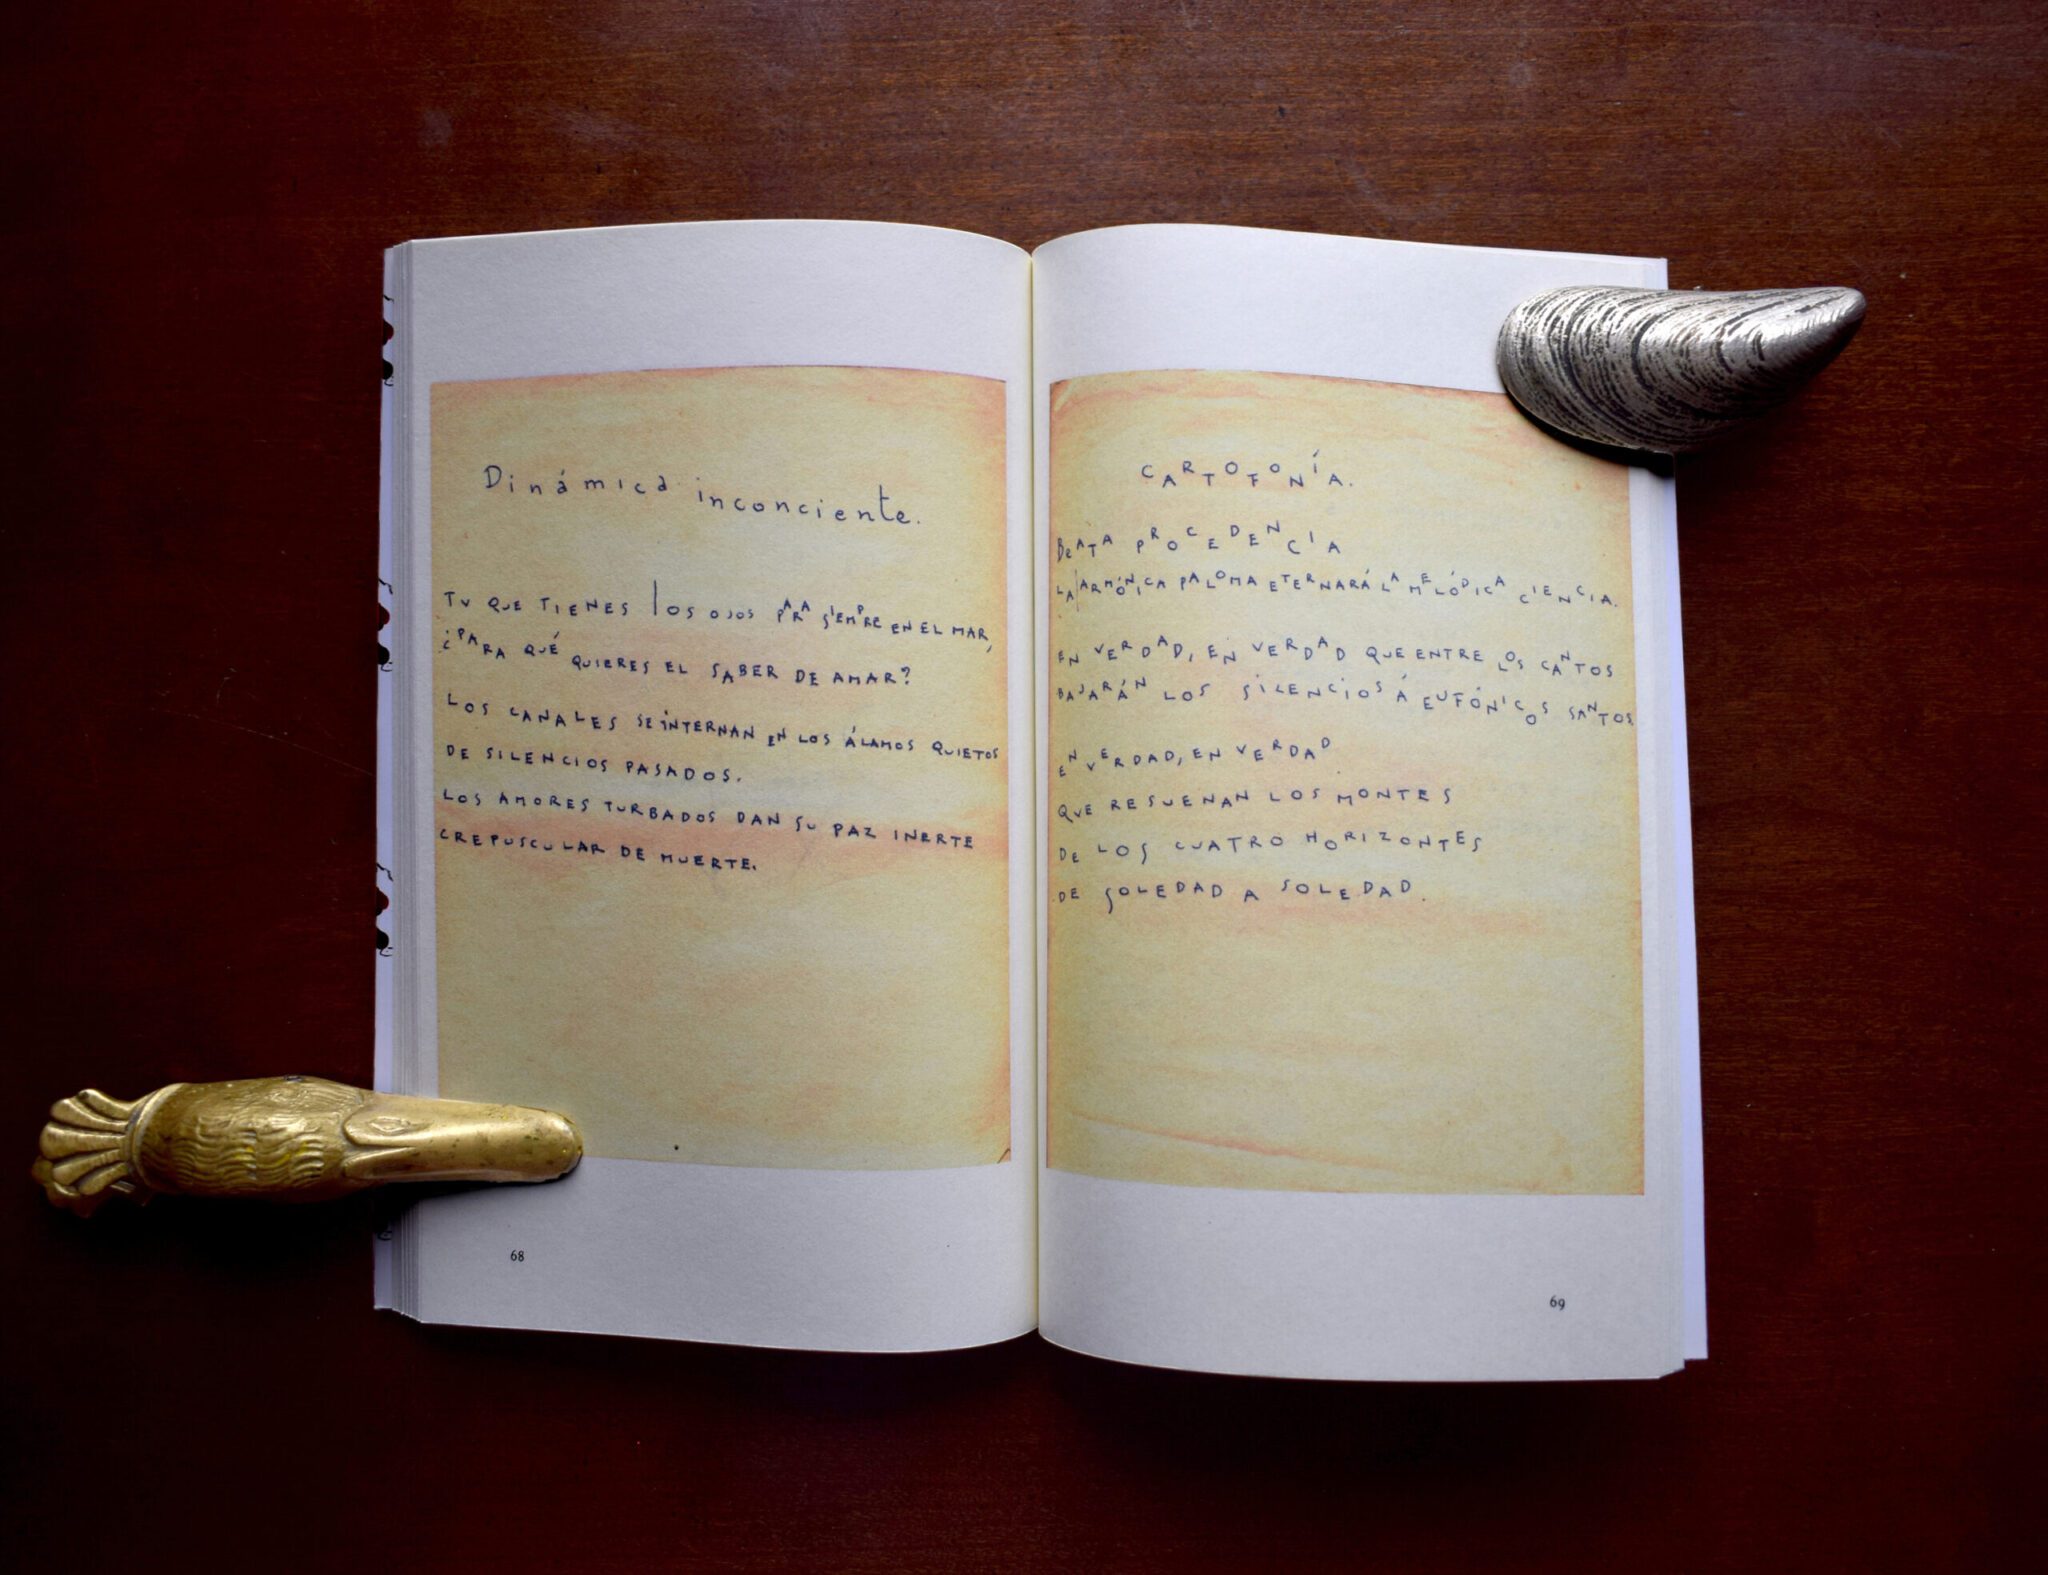 Dinámica inconciente.
TU QUE TIENES LOS OJOS PARA SIEMPRE EN EL MAR,
¿PARA QUÉ QUIERES EL SABER DE AMAR?
LOS CANALES SE INTERNAN EN LOS ÁLAMOS QUIETOS
DE SILENCIOS PASADOS.
LOS AMORES TURBADOS DAN SU PAZ INERTE
CREPUSCULAR DE MUERTE.
68
CARTOFONÍA.
BEATA PROCEDENCIA
LA ARMÓNICA PALOMA ETERNARÁ LA MELÓDICA CIENCIA.
EN VERDAD, EN VERDAD QUE ENTRE LOS CANTOS
BAJARÁN LOS SILENCIOS Á EUFÓNICOS SANTOS
EN VERDAD, EN VERDAD
QUE RESUENAN LOS MONTES
DE LOS CUATRO HORIZONTES
DE SOLEDAD A SOLEDAD.
69